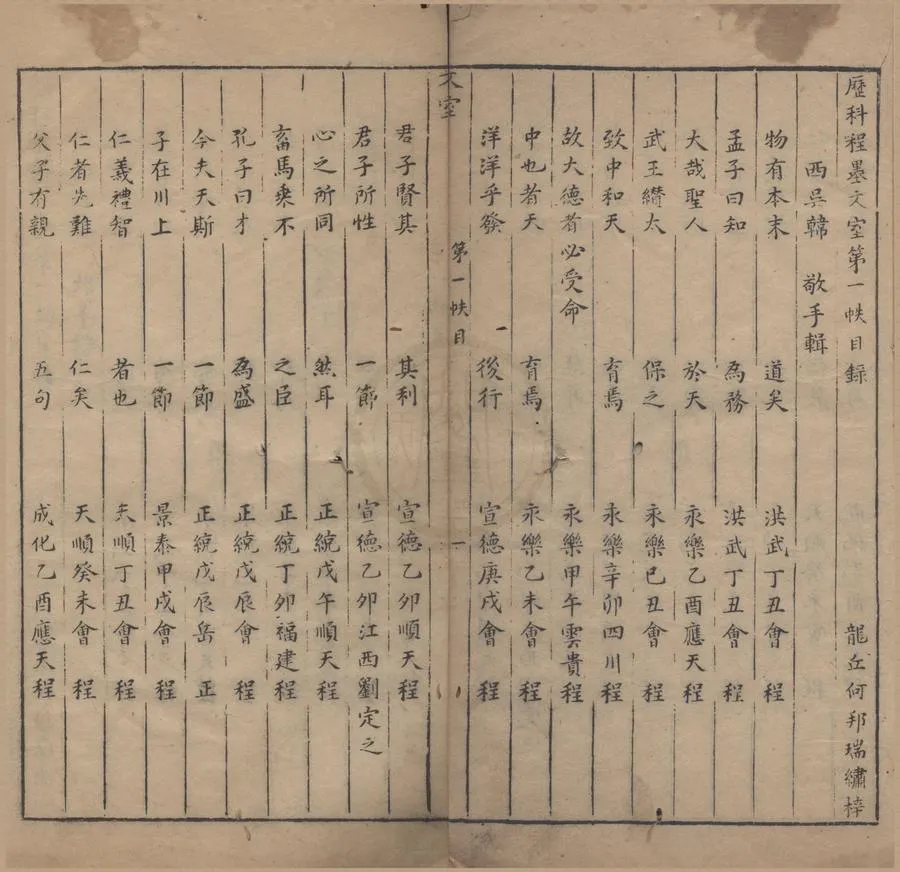 歷科程墨文室第一帙目錄
西吳韓 敬手輯 龍丘何邦瑞繡梓
物有本末 道矣 洪武丁丑會 程
孟子曰知 為務 洪武丁丑會 程
大哉聖人 於天 永樂乙酉應天 程
武王纉太 保之 永樂己丑會 程
致中和天 育焉 永樂辛卯四川 程
故大德者必受命 永樂甲午雲貴 程
中也者天 育焉 永樂乙未會 程
洋洋乎發 後行 宣德庚戌會 程
文室 第一帙目 一
君子賢其 其利 宣德乙卯順天 程
君子所性 一節 宣德乙卯江西劉定之
心之所同 然耳 正統戊午順天 程
畜馬乘不 之臣 正統丁卯福建 程
孔子曰才 為盛 正統戊辰會 程
今夫天斯 一節 正統戊辰岳 正
子在川上 一節 景泰甲戌會 程
仁義禮智 者也 天順丁丑會 程
仁者先難 仁矣 天順癸未會 程
父子有親 五句 成化乙酉應天 程